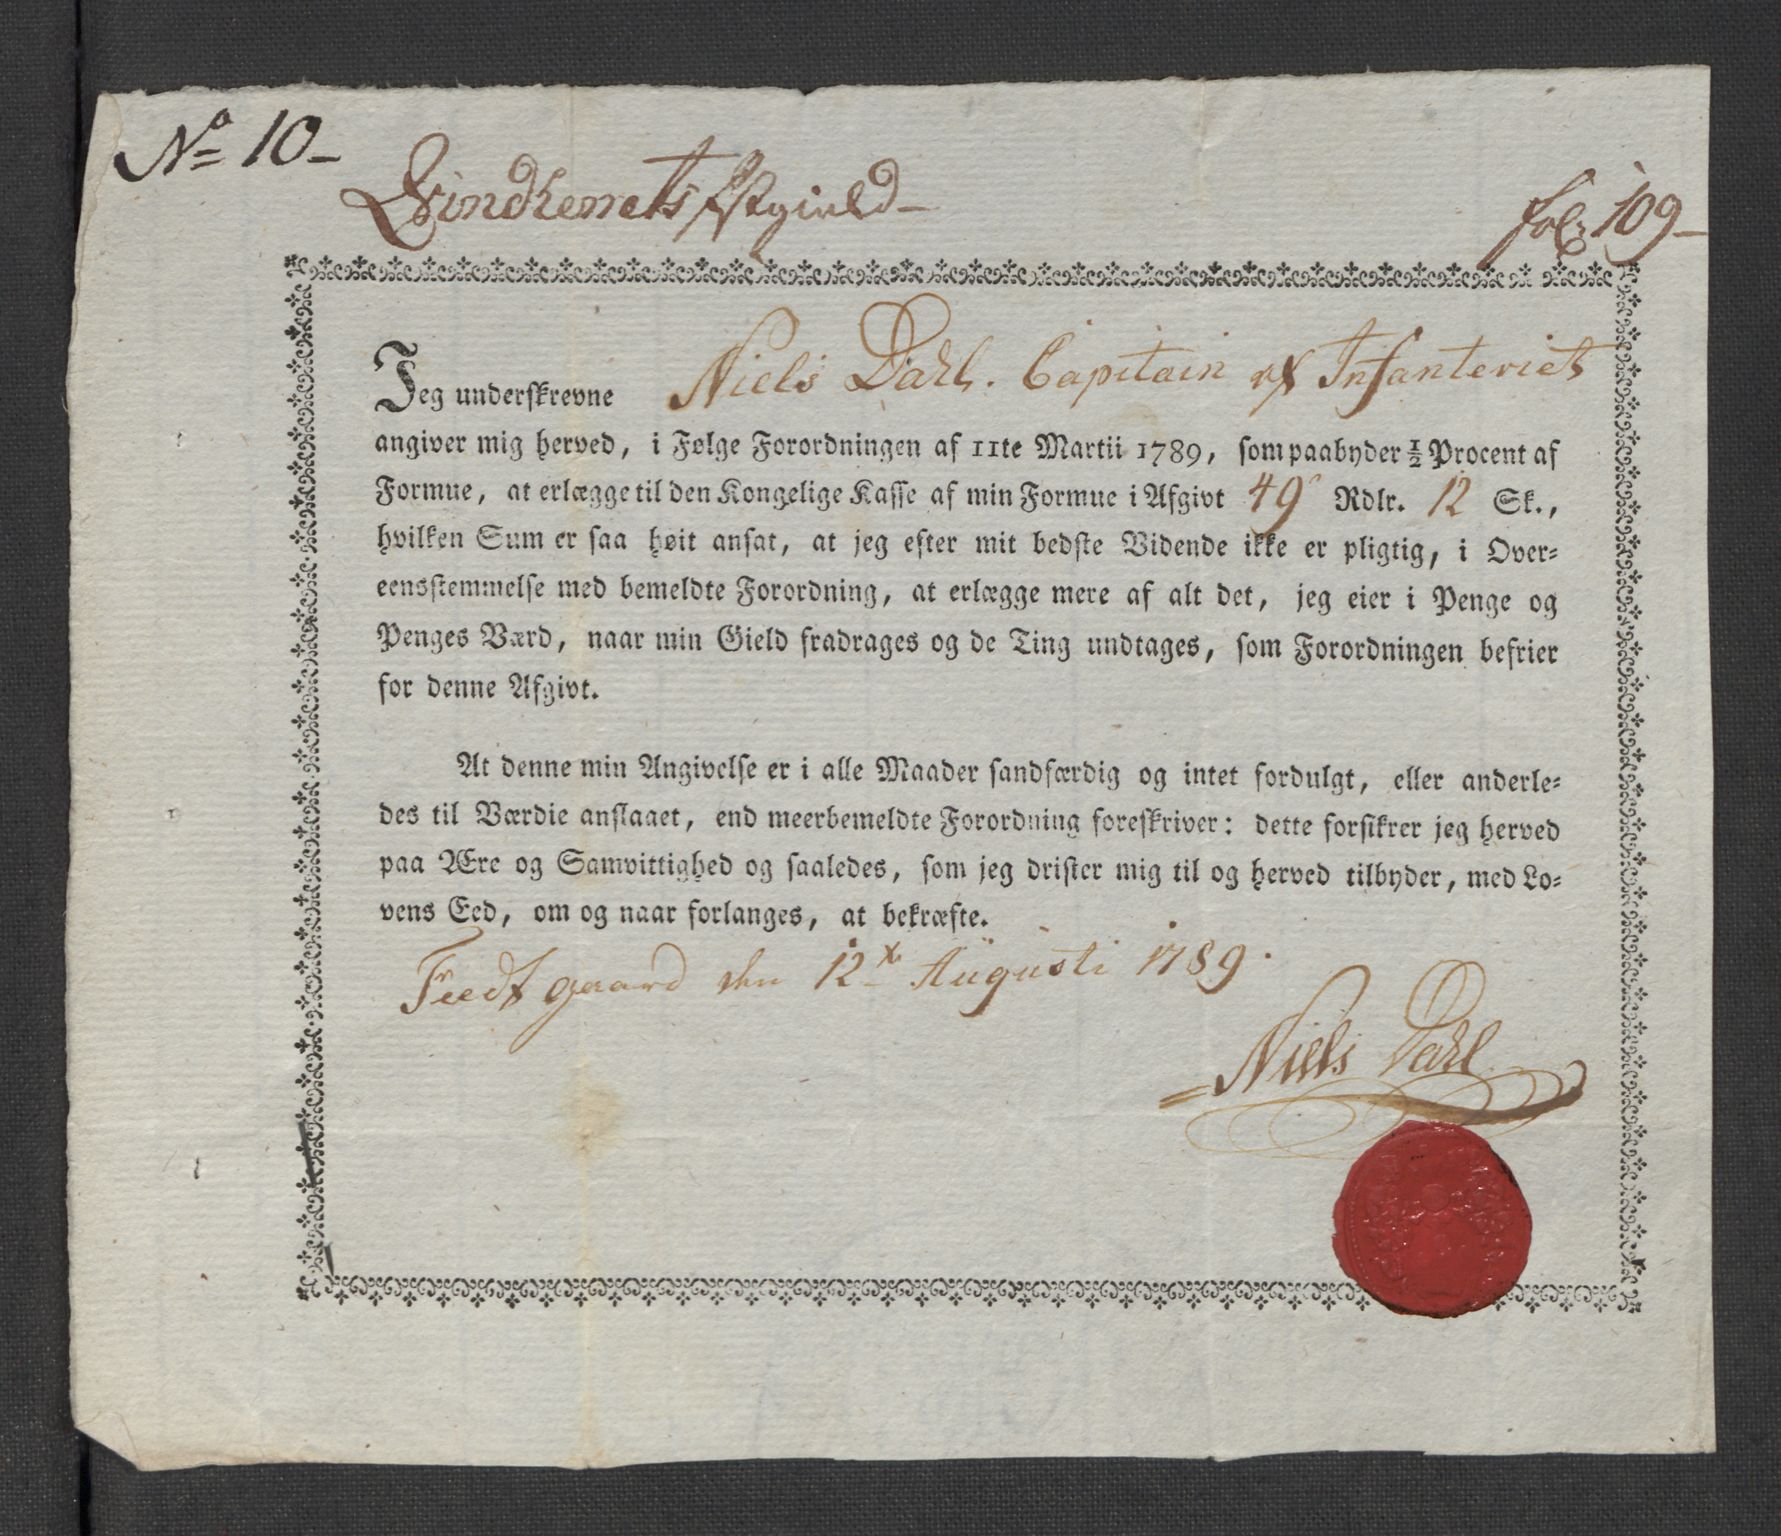 No 10
Qvindherrets Præstegield
fol: 109
Jeg underskrevne Niels Dahl. Capitain af Infanteriet
angiver mig herved, i Følge Forordningen af 11te Martii 1789, som paabyder ½ Procent af
Formue, at erlægge til den Kongelige Kasse af min Formue i Afgivt 49 Rdlr. 12 Sk.,
hvilken Sum er saa høit ansat, at jeg efter mit bedste Vidende ikke er pligtig, i Over-
eensstemmelse med bemeldte Forordning, at erlægge mere af alt det, jeg eier i Penge og
Penges Værd, naar min Gield fradrages og de Ting undtages, som Forordningen befrier
for denne Afgivt.
At denne min Angivelse er i alle Maader sandfærdig og intet fordulgt, eller anderle-
des til Værdie anslaaet, end meerbemeldte Forordning foreskriver: dette forsikrer jeg herved
paa Ære og Samvittighed og saaledes, som jeg drister mig til og herved tilbyder, med Lo-
vens Eed, om og naar forlanges, at bekræfte.
gaard den 12t Augusti 1789.
Niels Dahl